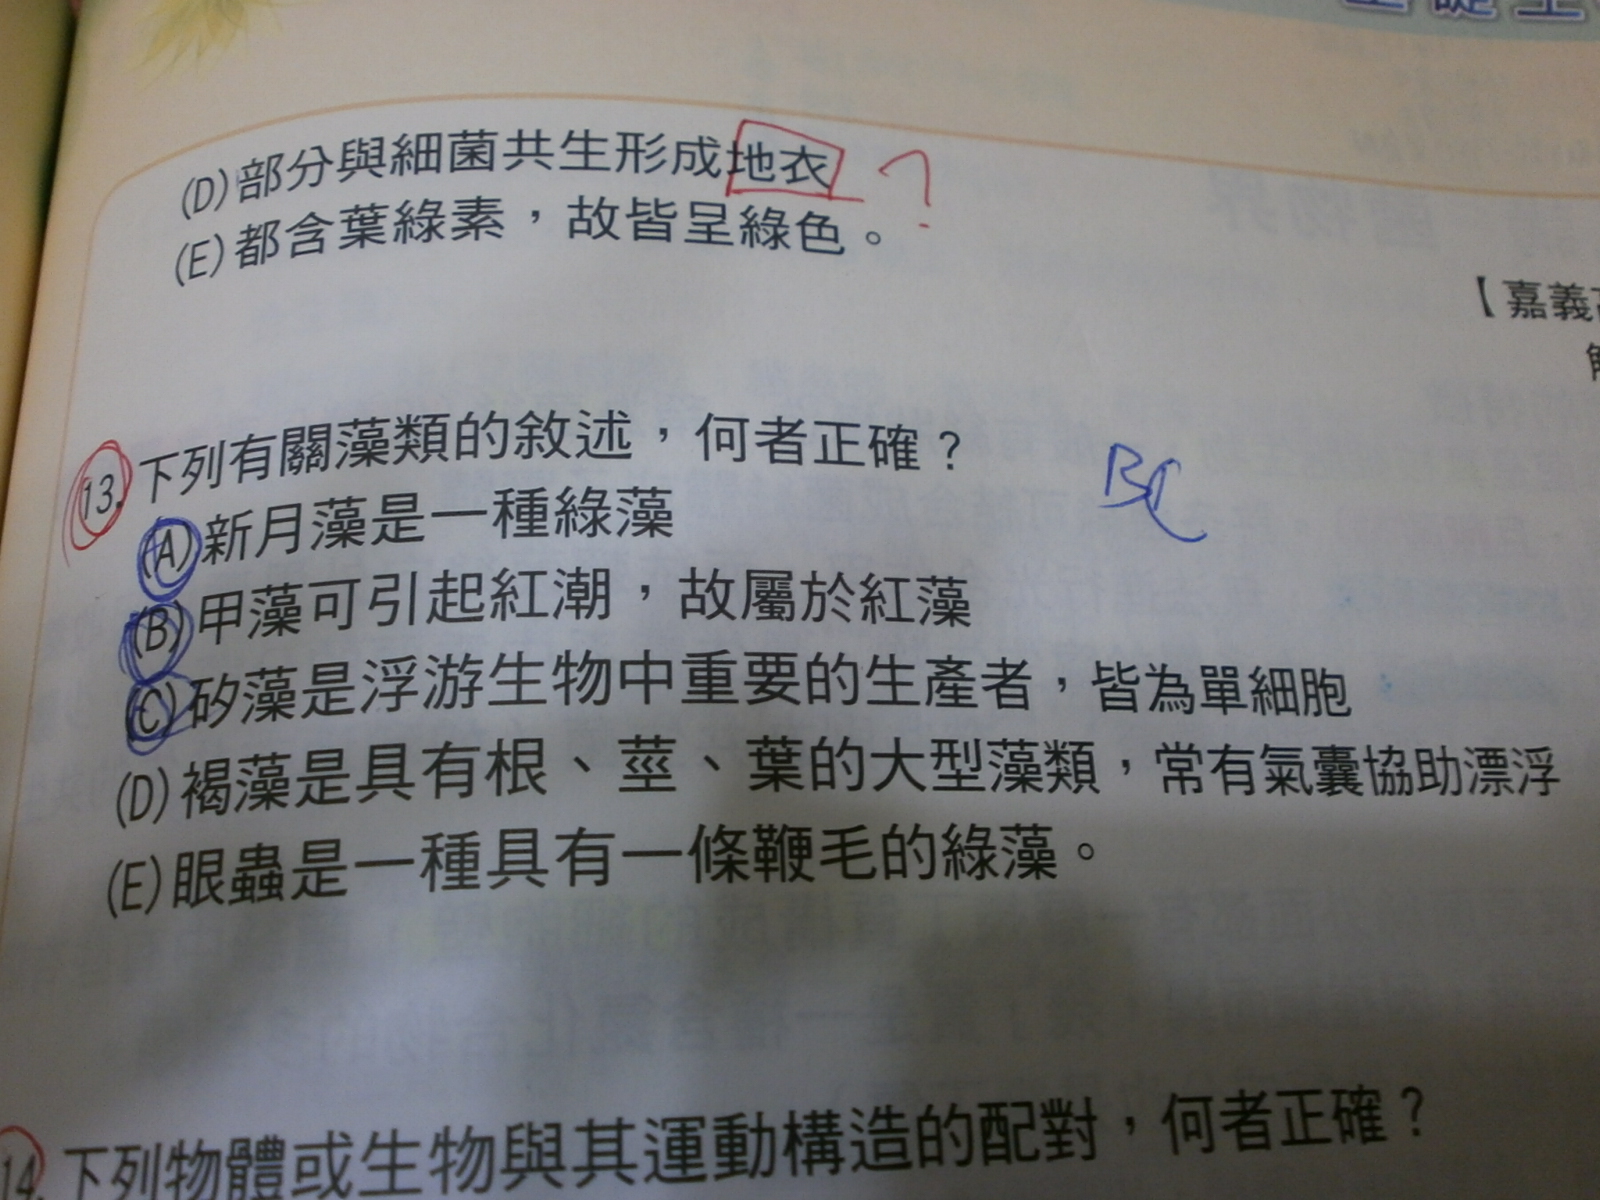 (D)部分與細菌共生形成地衣 ?
(E)都含葉綠素，故皆呈綠色。
【嘉義
13.下列有關藻類的敘述，何者正確？
BC
(A)新月藻是一種綠藻
(B)甲藻可引起紅潮，故屬於紅藻
(C)矽藻是浮游生物中重要的生產者，皆為單細胞
(D)褐藻是具有根、莖、葉的大型藻類，常有氣囊協助漂浮
(E)眼蟲是一種具有一條鞭毛的綠藻。
14.下列物體或生物與其運動構造的配對，何者正確？